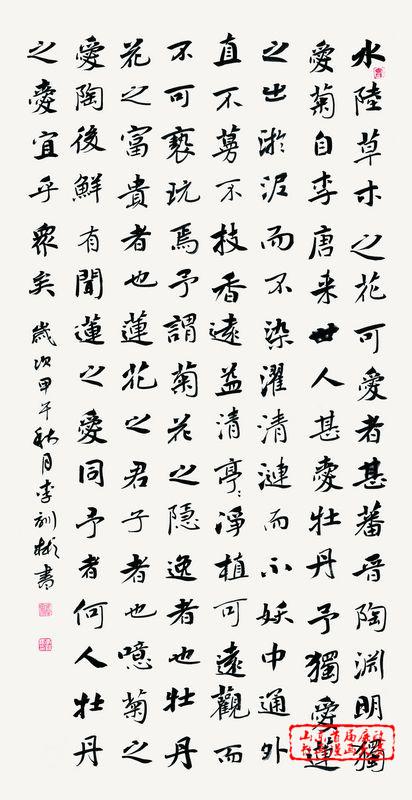 水陸草木之花可愛者甚蕃晋陶淵明獨
愛菊自李唐来世人甚愛牡丹予獨愛蓮
之出淤泥而不染濯清漣而不妖中通外
直不蔓不枝香遠益清亭〻淨植可遠觀而
不可褻玩焉予謂菊花之隱逸者也牡丹
花之富貴者也蓮花之君子者也噫菊之
愛陶後鮮有聞蓮之愛同予者何人牡丹
之愛宜乎衆矣 歲次甲午秋月李訓彬書